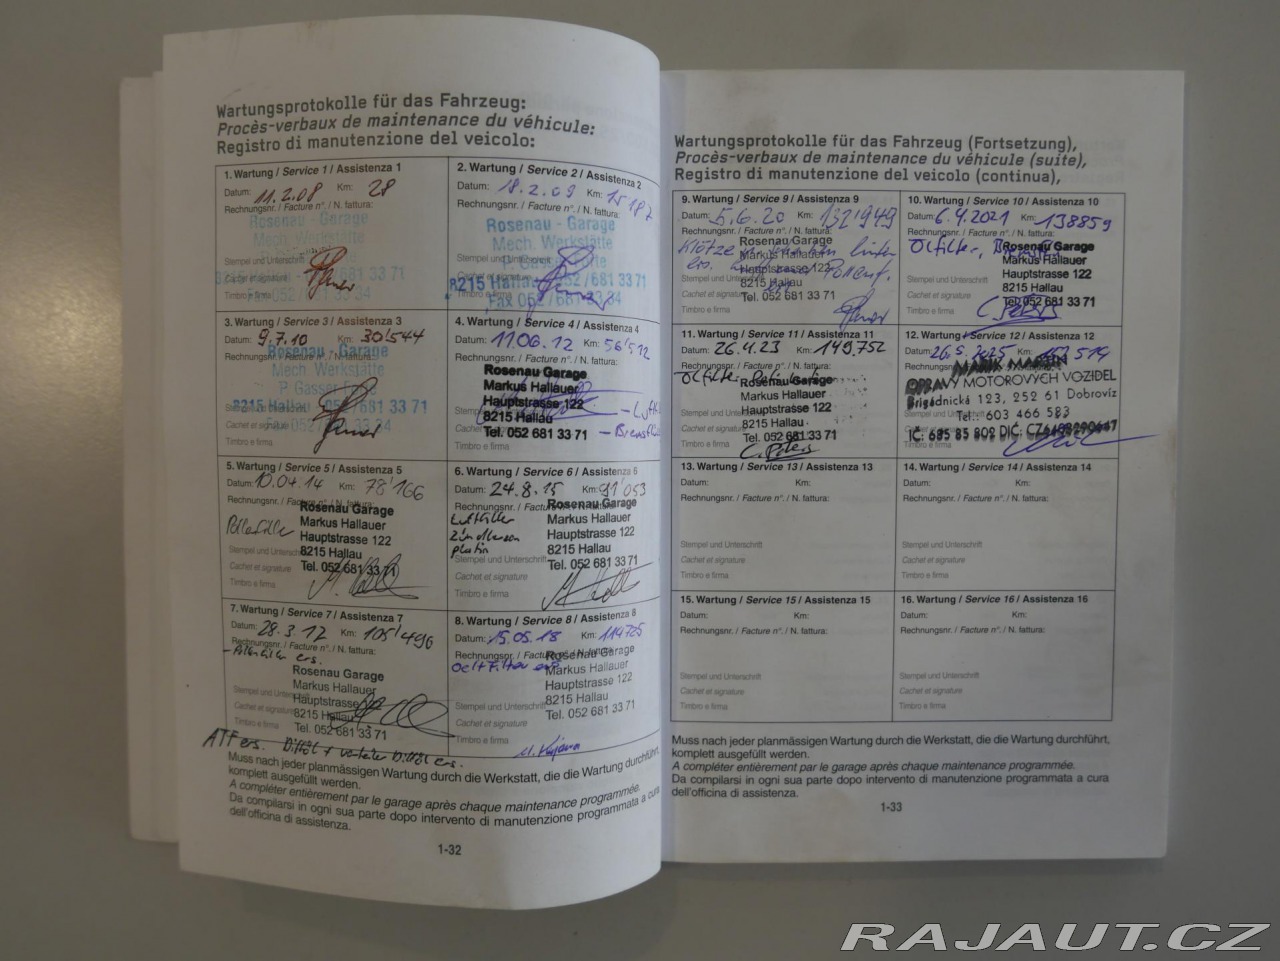 Wartungsprotokolle für das Fahrzeug:
Procès-verbaux de maintenance du véhicule:
Registro di manutenzione del veicolo:
1. Wartung / Service 1 / Assistenza 1
Datum: 11.2.08 Km: 28
Rechnungsnr. / Facture n°. / N. fattura:
Rosenau - Garage
Mech. Werkstätte
Stempel und Unterschrift
Cachet et signature
Timbro e firma
2. Wartung / Service 2 / Assistenza 2
Datum: 18.2.09 Km: 15'187
Rechnungsnr. / Facture n°. / N. fattura:
Rosenau - Garage
Mech. Werkstätte
8215 Hallau 052/681 33 71
Fax 052/681
3. Wartung / Service 3 / Assistenza 3
Datum: 9.7.10 Km: 30'544
Rechnungsnr. / Facture n°. / N. fattura:
Rosenau - Garage
Mech. Werkstätte
P. Gasser
8215 Hallau 052/681 33 71
Cachet et signature
Timbro e firma
4. Wartung / Service 4 / Assistenza 4
Datum: 11.06.12 Km: 56'512
Rechnungsnr. / Facture n°. / N. fattura:
Rosenau Garage
Markus Hallauer
Hauptstrasse 122
8215 Hallau
Tel. 052 681 33 71
Cachet et signature
Timbro e firma
5. Wartung / Service 5 / Assistenza 5
Datum: 10.04.14 Km: 78'166
Rechnungsnr. / Facture n°. / N. fattura:
Rosenau Garage
Markus Hallauer
Hauptstrasse 122
8215 Hallau
Tel. 052 681 33 71
Pollenfilter
Stempel und Unterschrift
Cachet et signature
Timbro e firma
6. Wartung / Service 6 / Assistenza 6
Datum: 24.8.15 Km: 91'053
Rechnungsnr. / Facture n°. / N. fattura:
Luftfilter
Rosenau Garage
Markus Hallauer
Hauptstrasse 122
8215 Hallau
Tel. 052 681 33 71
platin
Stempel und Unterschrift
Cachet et signature
Timbro e firma
7. Wartung / Service 7 / Assistenza 7
Datum: 28.3.17 Km: 105'496
Rechnungsnr. / Facture n°. / N. fattura:
- Pollenfilter ers.
Rosenau Garage
Markus Hallauer
Hauptstrasse 122
8215 Hallau
Tel. 052 681 33 71
Stempel und Unterschrift
Cachet et signature
Timbro e firma
ATF ers. Difföl + ers.
8. Wartung / Service 8 / Assistenza 8
Datum: 15.05.18 Km: 114725
Rechnungsnr. / Facture n°. / N. fattura:
Oel+Filter ers
Rosenau Garage
Markus Hallauer
Hauptstrasse 122
8215 Hallau
Tel. 052 681 33 71
Stempel und Unterschrift
Cachet et signature
Timbro e firma
Muss nach jeder planmässigen Wartung durch die Werkstatt, die die Wartung durchführt,
komplett ausgefüllt werden.
A compléter entièrement par le garage après chaque maintenance programmée.
Da compilarsi in ogni sua parte dopo intervento di manutenzione programmata a cura
dell'officina di assistenza.
1-32
Wartungsprotokolle für das Fahrzeug (Fortsetzung),
Procès-verbaux de maintenance du véhicule (suite),
Registro di manutenzione del veicolo (continua),
9. Wartung / Service 9 / Assistenza 9
Datum: 5.6.20 Km: 132'949
Rechnungsnr. / Facture n°. / N. fattura:
Klötze hinten
ers.
Rosenau Garage
Markus Hallauer
Hauptstrasse 122
8215 Hallau
Tel. 052 681 33 71
Stempel und Unterschrift
Cachet et signature
Timbro e firma
10. Wartung / Service 10 / Assistenza 10
Datum: 6.4.2021 Km: 138859
Rechnungsnr. / Facture n°. / N. fattura:
Ölfilter,
Rosenau Garage
Markus Hallauer
Hauptstrasse 122
8215 Hallau
Tel. 052 681 33 71
Stempel und Unterschrift
Cachet et signature
Timbro e firma
11. Wartung / Service 11 / Assistenza 11
Datum: 26.4.23 Km: 149.752
Rechnungsnr. / Facture n°. / N. fattura:
Ölfilter
Rosenau Garage
Markus Hallauer
Hauptstrasse 122
8215 Hallau
Tel. 052 681 33 71
Stempel und Unterschrift
Cachet et signature
Timbro e firma
12. Wartung / Service 12 / Assistenza 12
Datum: 26.5.2025
MARTIN
OPRAVY MOTOROVÝCH VOZIDEL
Brigádnická 123, 252 61 Dobrovíz
Tel.: 603 466 583
IČ: 685 85 802 DIČ: CZ
13. Wartung / Service 13 / Assistenza 13
Datum: Km:
Rechnungsnr. / Facture n°. / N. fattura:
Stempel und Unterschrift
Cachet et signature
Timbro e firma
14. Wartung / Service 14 / Assistenza 14
Datum: Km:
Rechnungsnr. / Facture n°. / N. fattura:
Stempel und Unterschrift
Cachet et signature
Timbro e firma
15. Wartung / Service 15 / Assistenza 15
Datum: Km:
Rechnungsnr. / Facture n°. / N. fattura:
Stempel und Unterschrift
Cachet et signature
Timbro e firma
16. Wartung / Service 16 / Assistenza 16
Datum: Km:
Rechnungsnr. / Facture n°. / N. fattura:
Stempel und Unterschrift
Cachet et signature
Timbro e firma
Muss nach jeder planmässigen Wartung durch die Werkstatt, die die Wartung durchführt,
komplett ausgefüllt werden.
A compléter entièrement par le garage après chaque maintenance programmée.
Da compilarsi in ogni sua parte dopo intervento di manutenzione programmata a cura
dell'officina di assistenza.
1-33
RAJAUT.CZ